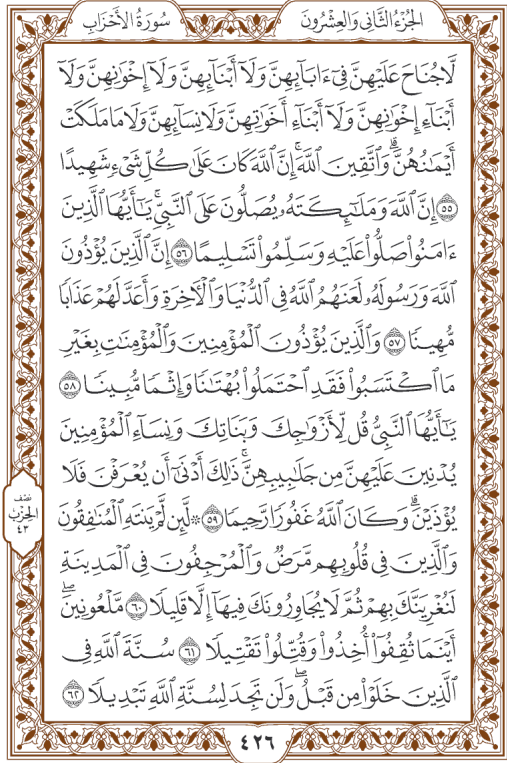 الجُزْءُ الثَّانِي وَالعِشْرُونَ
سُورَةُ الأَحْزَابِ
لَّا جُنَاحَ عَلَيْهِنَّ فِىٓ ءَابَآئِهِنَّ وَلَآ أَبْنَآئِهِنَّ وَلَآ إِخْوَٰنِهِنَّ وَلَآ
أَبْنَآءِ إِخْوَٰنِهِنَّ وَلَآ أَبْنَآءِ أَخَوَٰتِهِنَّ وَلَا نِسَآئِهِنَّ وَلَا مَا مَلَكَتْ
أَيْمَٰنُهُنَّۗ وَٱتَّقِينَ ٱللَّهَۚ إِنَّ ٱللَّهَ كَانَ عَلَىٰ كُلِّ شَىْءٍ شَهِيدًا
٥٥ إِنَّ ٱللَّهَ وَمَلَٰٓئِكَتَهُۥ يُصَلُّونَ عَلَى ٱلنَّبِىِّۚ يَٰٓأَيُّهَا ٱلَّذِينَ
ءَامَنُوا۟ صَلُّوا۟ عَلَيْهِ وَسَلِّمُوا۟ تَسْلِيمًا ٥٦ إِنَّ ٱلَّذِينَ يُؤْذُونَ
ٱللَّهَ وَرَسُولَهُۥ لَعَنَهُمُ ٱللَّهُ فِى ٱلدُّنْيَا وَٱلْءَاخِرَةِ وَأَعَدَّ لَهُمْ عَذَابًا
مُّهِينًا ٥٧ وَٱلَّذِينَ يُؤْذُونَ ٱلْمُؤْمِنِينَ وَٱلْمُؤْمِنَٰتِ بِغَيْرِ
مَا ٱكْتَسَبُوا۟ فَقَدِ ٱحْتَمَلُوا۟ بُهْتَٰنًا وَإِثْمًا مُّبِينًا ٥٨
يَٰٓأَيُّهَا ٱلنَّبِىُّ قُل لِّأَزْوَٰجِكَ وَبَنَاتِكَ وَنِسَآءِ ٱلْمُؤْمِنِينَ
يُدْنِينَ عَلَيْهِنَّ مِن جَلَٰبِيبِهِنَّۚ ذَٰلِكَ أَدْنَىٰٓ أَن يُعْرَفْنَ فَلَا
يُؤْذَيْنَۗ وَكَانَ ٱللَّهُ غَفُورًا رَّحِيمًا ٥٩ ۞ لَّئِن لَّمْ يَنتَهِ ٱلْمُنَٰفِقُونَ
وَٱلَّذِينَ فِى قُلُوبِهِم مَّرَضٌ وَٱلْمُرْجِفُونَ فِى ٱلْمَدِينَةِ
لَنُغْرِيَنَّكَ بِهِمْ ثُمَّ لَا يُجَاوِرُونَكَ فِيهَآ إِلَّا قَلِيلًا ٦٠ مَّلْعُونِينَۖ
أَيْنَمَا ثُقِفُوٓا۟ أُخِذُوا۟ وَقُتِّلُوا۟ تَقْتِيلًا ٦١ سُنَّةَ ٱللَّهِ فِى
ٱلَّذِينَ خَلَوْا۟ مِن قَبْلُۖ وَلَن تَجِدَ لِسُنَّةِ ٱللَّهِ تَبْدِيلًا ٦٢
نِصْف
الحِزْبِ
٤٣
٤٢٦